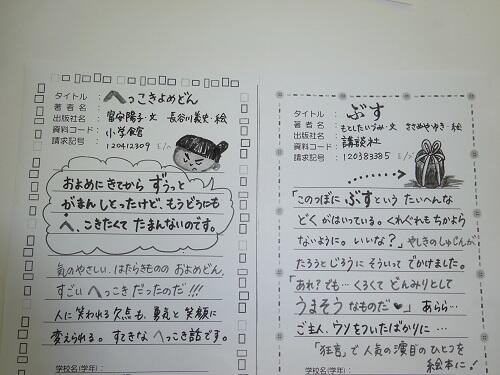 タイトル : へっこきよめどん
著者名 : 富安陽子・文 長谷川義史・絵
出版社名 : 小学館
資料コード : 120412309
請求記号 : E/ハ
およめにきてから ずうっと
がまんしとったけど、もうどうにも
へ、こきたくて たまんないのです。
気のやさしい、はたらきものの およめどん、
すごい へっこき だったのだ!!!
人に笑われる欠点も、勇気と笑顔に
変えられる。すてきな へっこき話です。
学校名(学年) :
タイトル : ぶす
著者名 : もとしたいづみ・文 ささめやゆき・絵
出版社名 : 講談社
資料コード : 120383385
請求記号 :
「このつぼに ぶすという たいへんな
どくがはいっている。くれぐれも ちかよら
ないように。いいな?」やしきのしゅじんが
たろうとじろうに そういって でかけました。
「あれ?でも…くろくて どんみりとして
うまそうなものだ♥」あらら…
ご主人、ウソをついたばかりに…
「狂言」で人気の演目のひとつを
絵本に!
学校名(学年) :